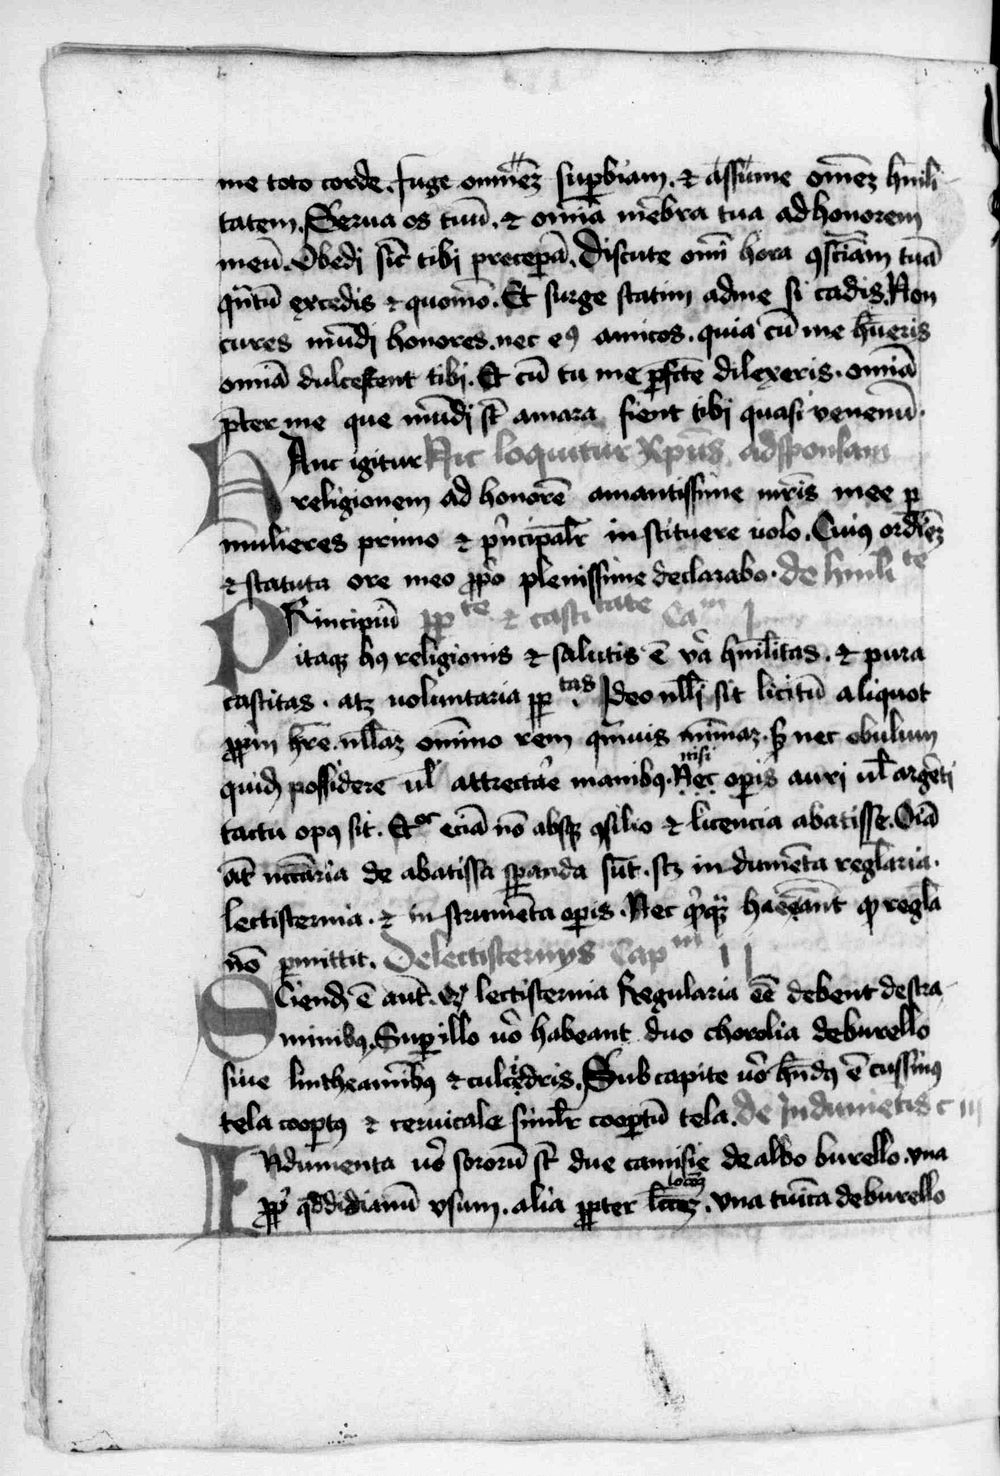 me toto corde. fuge om̄ez suꝑbiam. ⁊ assume om̄ez humili
tatem. Serua os tuū. ⁊ om̄ia mēbra tua ad honorem
meū. Obedj sic̄ tibj precepa̅. Discute om̄i hora ꝯsciam̄ tuā
qn̄tū excedis ⁊ quomō. Et surge statim adme si cadis. Non
cures mūdj honores. nec eꝰ amicos. quia cū me hūeris
om̄ia dulcescent tibj. Et cū tu me ꝑfcē dilexeris. om̄ia
p̄ter me que mūdj st̄ amara fient tibj quasi venenū.
HAnc igitur Hic loquitur Xp̄us adsponsam
religionem ad honorē amantissime mr̄is mee ꝑ
mulieres primo ⁊ pⁱncipalr̄ instituere uolo. Cuiꝰ ordīez
⁊ statuta ore meo ꝓpⁱo plenissime declarabo. de huīli te
PRincipiū ꝑꝑte ⁊ castitate Cam I
itaqꝫ hꝰ religionis ⁊ salutis ē va̅ huīlitas. ⁊ pura
castitas. atꝫ uoluntaria ꝑꝑtas. Ideo nll̄j sit licitū aliquot
ꝓpⁱm hr̄e. nll̄az om̄ino rem qm̄uis mīmaz. sꝫ nec obulum
quidꝫ possidere ul̄ attrectar̄e manibꝰ. Nec nisi oꝑis aurj ul̄ argētj
tactu opꝰ sit. Et hoc eciā nō absqꝫ ꝯsilio ⁊ licencia abatisse. Oīa
āt nccāria de abatissa spanda sūt. scꝫ indumēta reglaria.
lectisternia. ⁊ instrumēta oꝑis. Nec qⁱcqꝫ habeant qꝫ regla
nō ꝑmittit. Delectisternijs Capm II
SCiendꝫ ē aut̄. qꝫ lectisternia Regularia eē debent destra
minibꝰ. Suꝑ illo uō habeant duo chorolia deburello
siue lintheamībꝰ ⁊ culcedris. Sub capite uō hn̄dꝰ ē cussinꝰ
tela cooꝑtꝰ ⁊ ceruicale simlr̄ cooꝑtū tela. de Indumētis c III
INdumenta uō sororū st̄ due camisie de albo burello. vna
ꝓp̄ qͦdidianū vsum. alia ꝓpter locoꝫ. vna tunica deburello